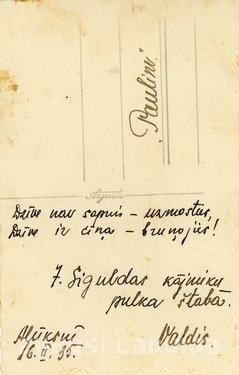 „Pauliņi"
Argenta
Dzīve nav sapnis – uzmosties,
Dzīve ir cīņa – bruņojies!
7. Siguldas kājnieku
pulka štābā.
Alūksnē
16. II. 35.
Valdis.